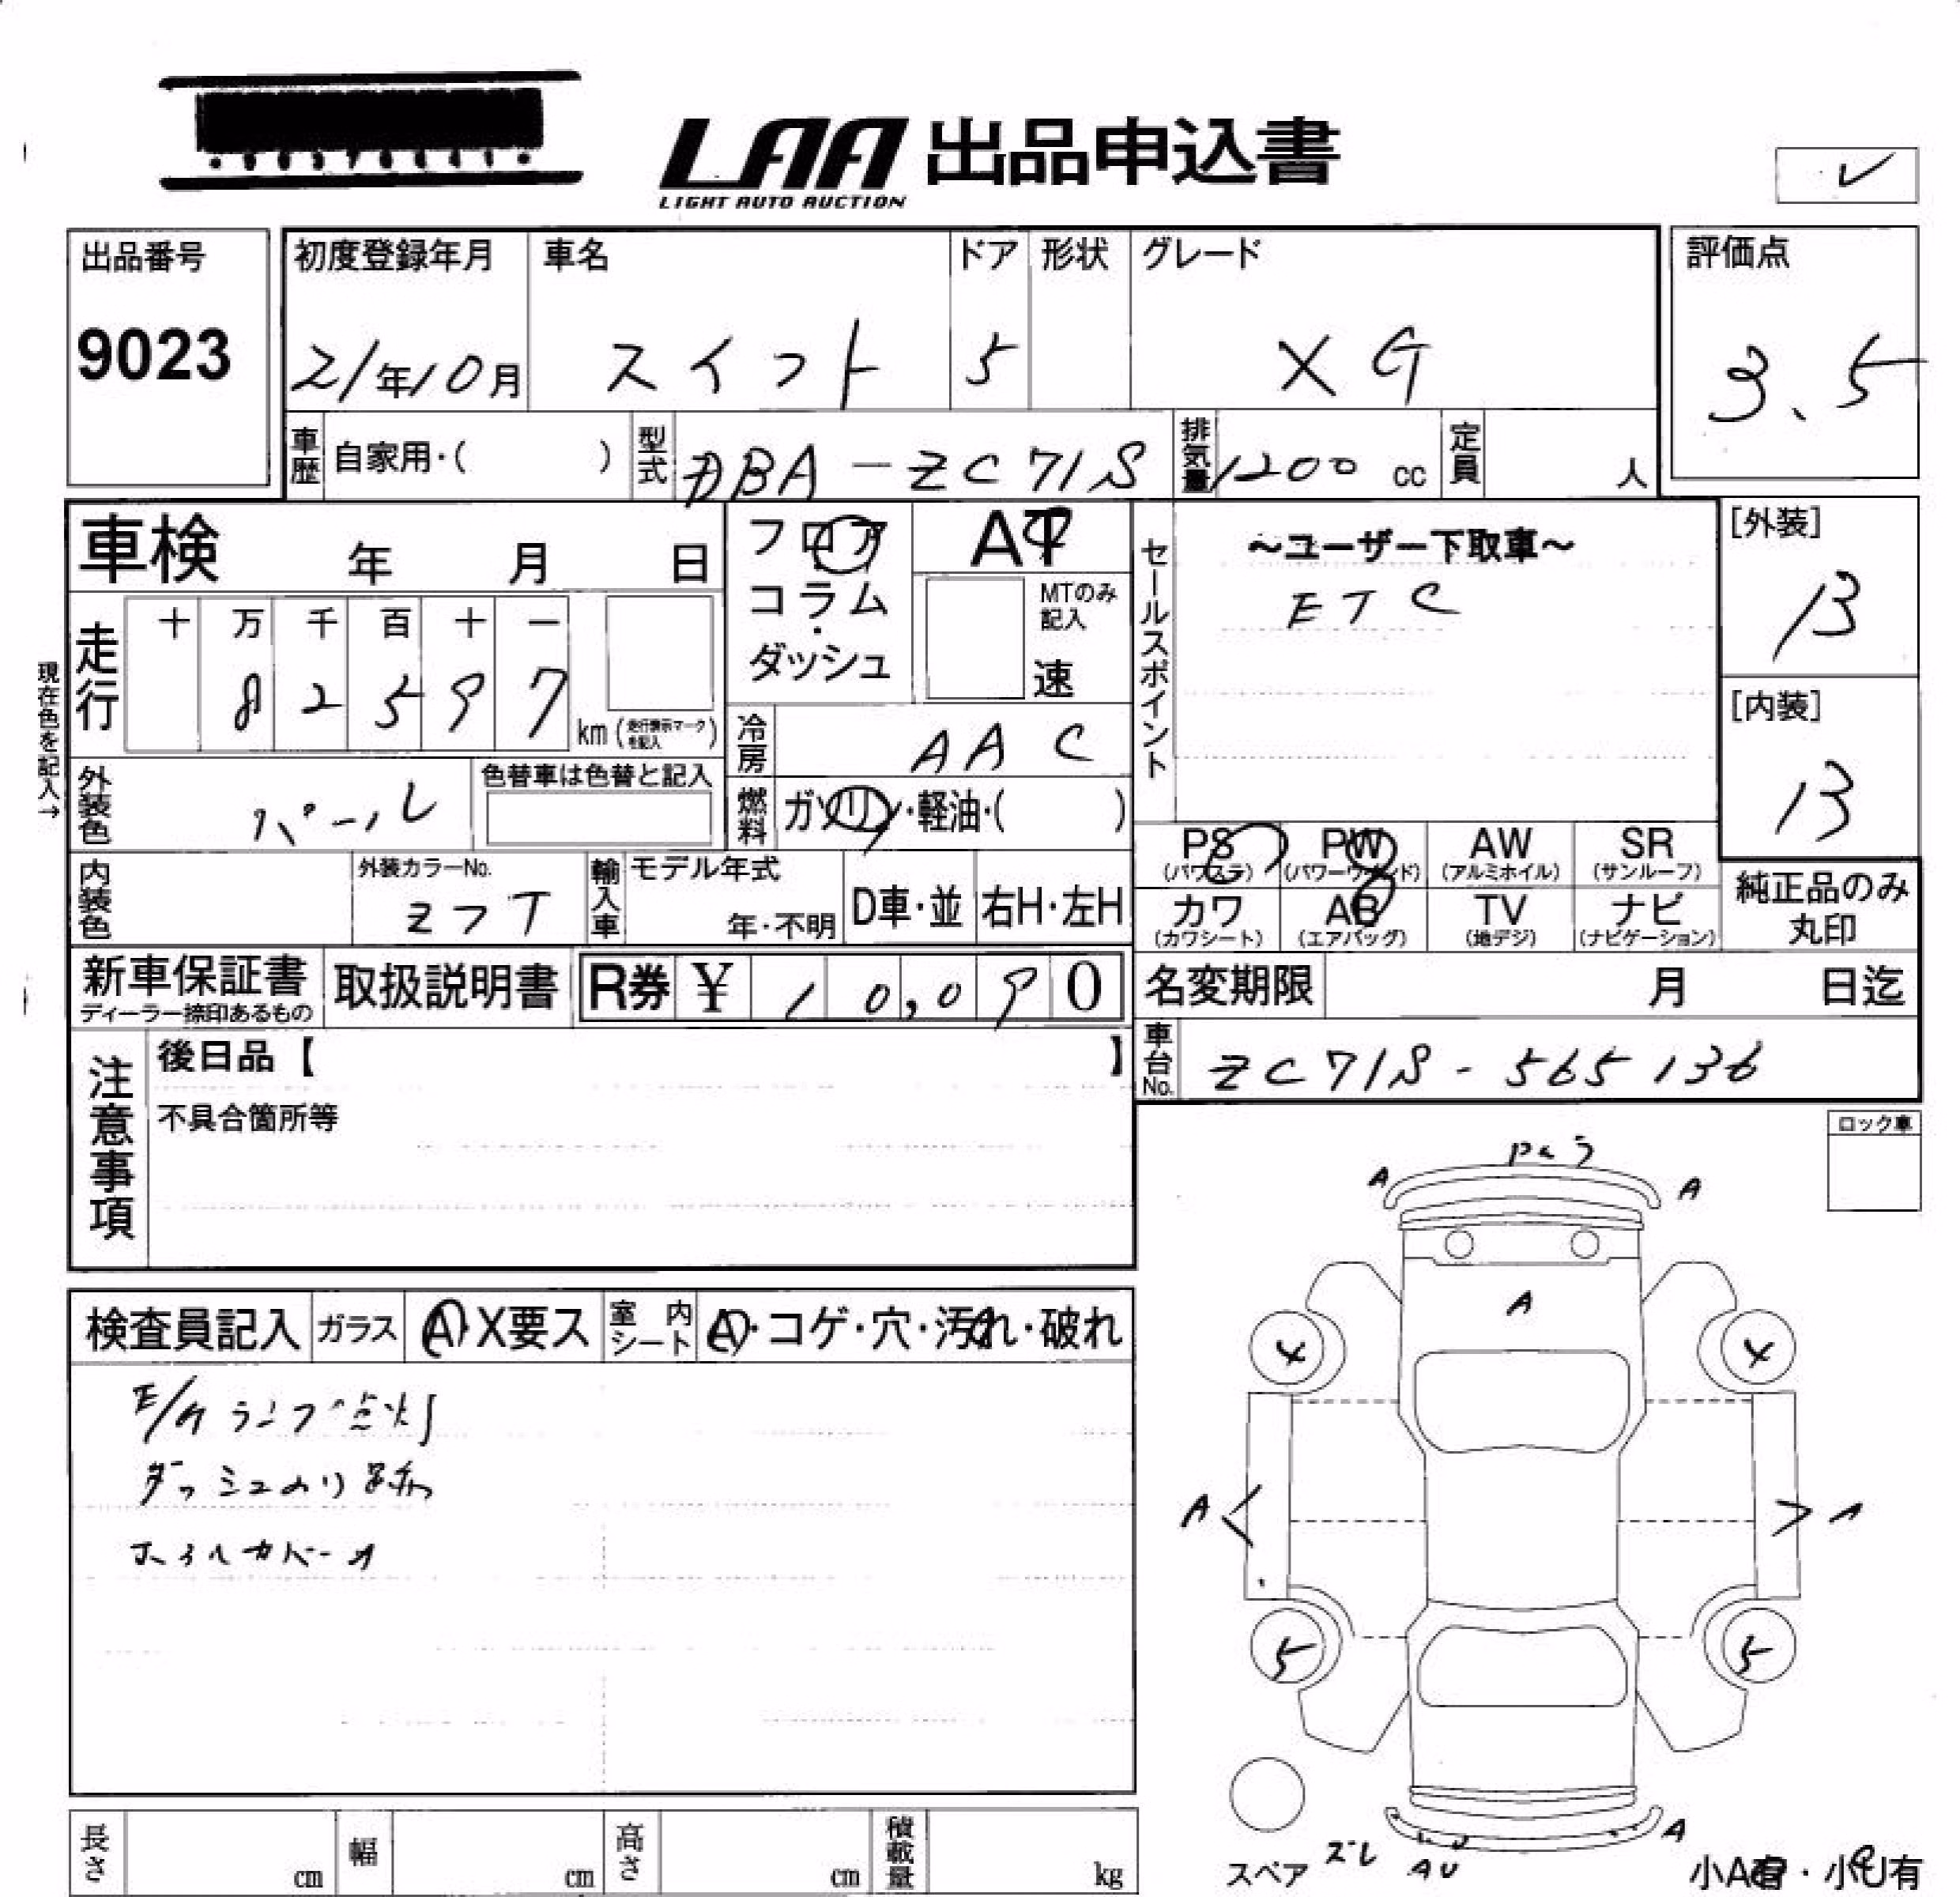 LAA 出品申込書
LIGHT AUTO AUCTION
出品番号
9023
初度登録年月 車名 ドア 形状 グレード
21年10月 スイフト 5 XG
評価点
3.5
車歴 自家用・( ) 型式 DBA-ZC71S 排気量 1200 cc 定員 人
車検 年 月 日
フロア
コラム
・
ダッシュ
AT
MTのみ
記入
速
セールスポイント
~ユーザー下取車~
ETC
[外装]
B
[内装]
B
現在色を記入→
走行
十 万 千 百 十 一
8 2 5 9 7
km (走行表示マークを記入)
冷房 AAC
外装色 パール
色替車は色替と記入
燃料 ガソリン・軽油・( )
PS (パワステ) PW (パワーウィンド) AW (アルミホイル) SR (サンルーフ)
カワ (カワシート) AB (エアバッグ) TV (地デジ) ナビ (ナビゲーション)
純正品のみ
丸印
内装色
外装カラーNo.
Z7T
輸入車 モデル年式
年・不明
D車・並 右H・左H
新車保証書
ディーラー捺印あるもの
取扱説明書
R券 ¥ 10,090
名変期限 月 日迄
車台No. ZC71S-565136
注意事項
後日品【 】
不具合箇所等
ロック車
検査員記入 ガラス A・X要ス 室内シート A・コゲ・穴・汚れ・破れ
E/Gランプ点灯
ダッシュのり跡
ホイルカバーA
A
A
A
4
4
A
A
5
5
A
ズレ
AU
スペア
小A有・小U有
長さ cm 幅 cm 高さ cm 積載量 kg